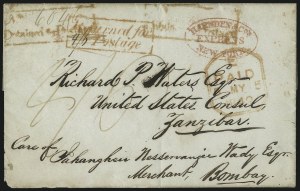 Detained for Postage
Returned for Postage
HARNDEN & CO
NEW YORK
PAID
MY
Richard P. Waters Esq
United States Consul,
Zanzibar.
Care of
Pahangheer Nesserwanjee Wady Esqr.
Merchant, Bombay.